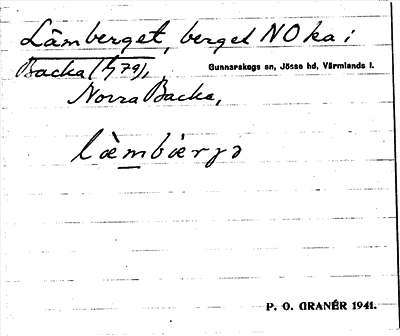 Lämberget, berget NO ka i
Backa (§ 79),
Gunnarskogs sn, Jösse hd, Värmlands l.
Norra Backa,
P. O. GRANÉR 1941.